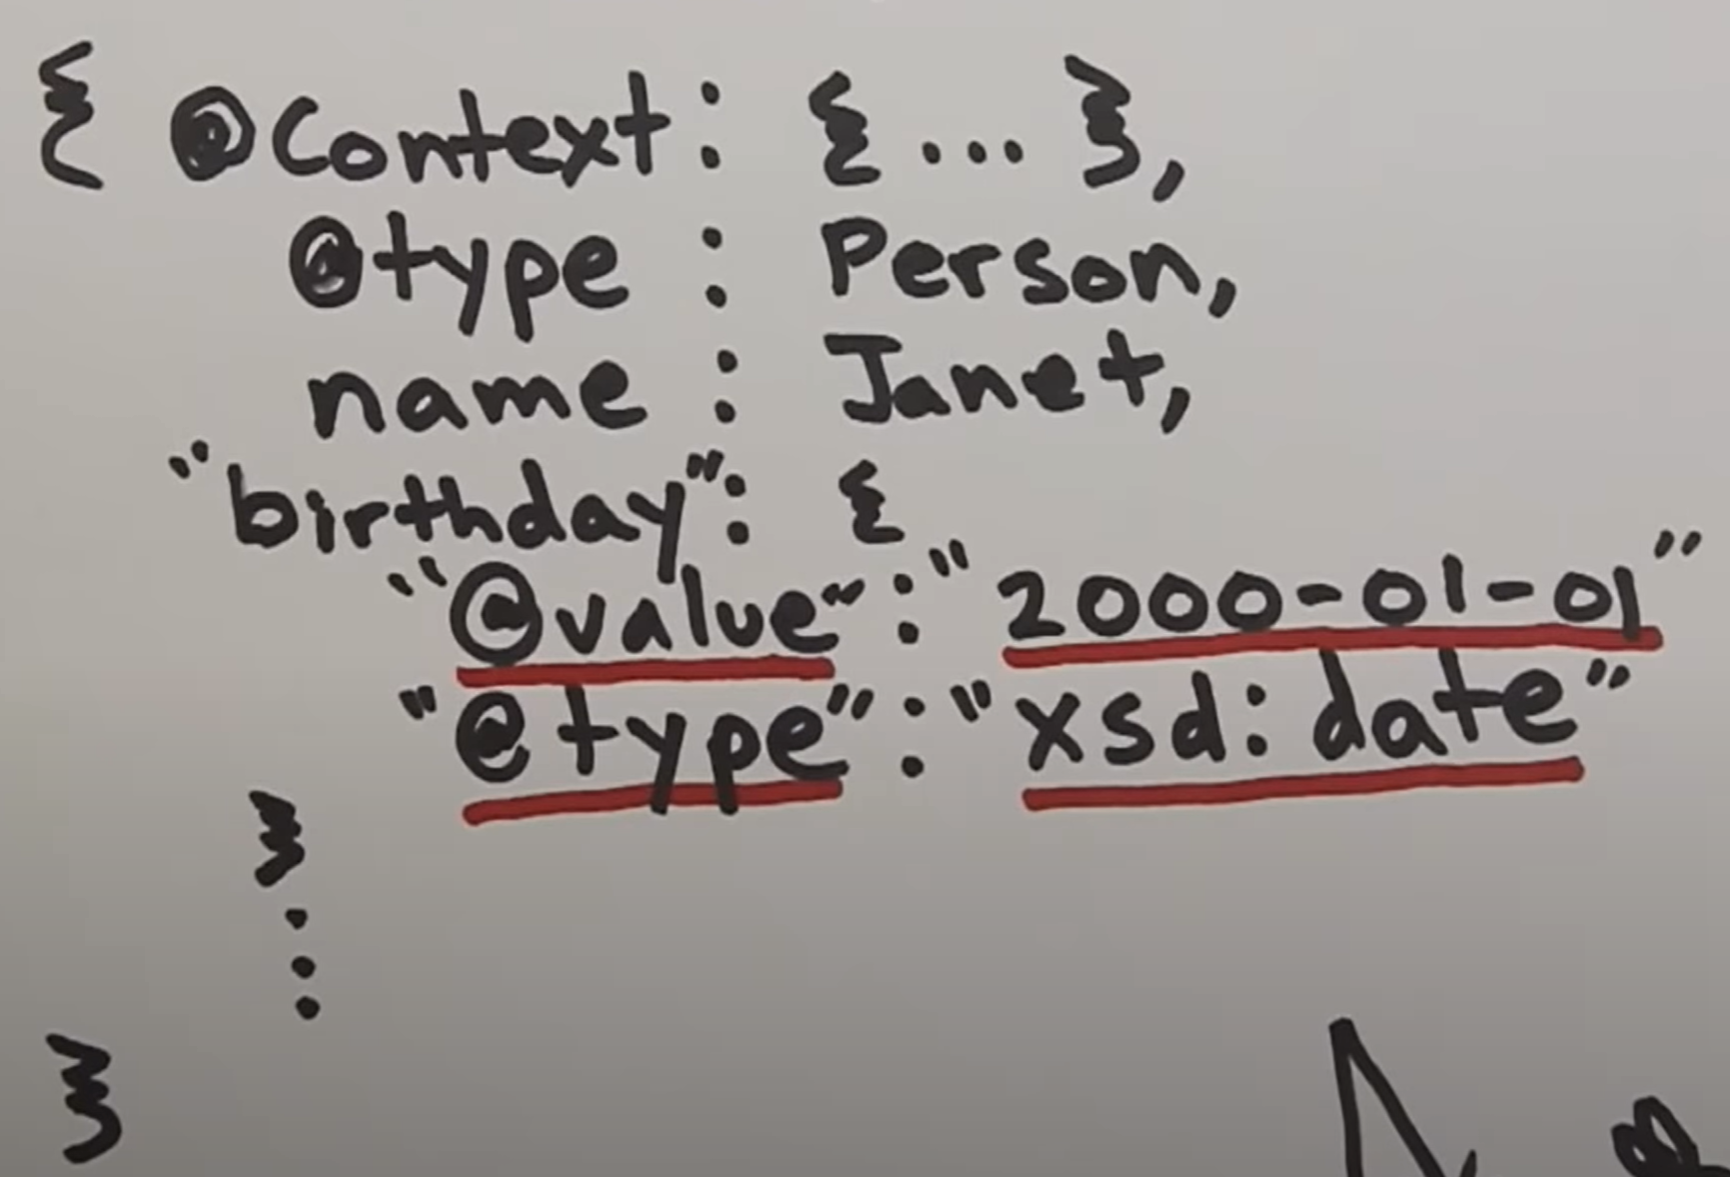 { @Context: {...},
@type : Person,
name : Janet,
"birthday": {
"@value": "2000-01-01"
"@type": "xsd:date"
}
⋮
}